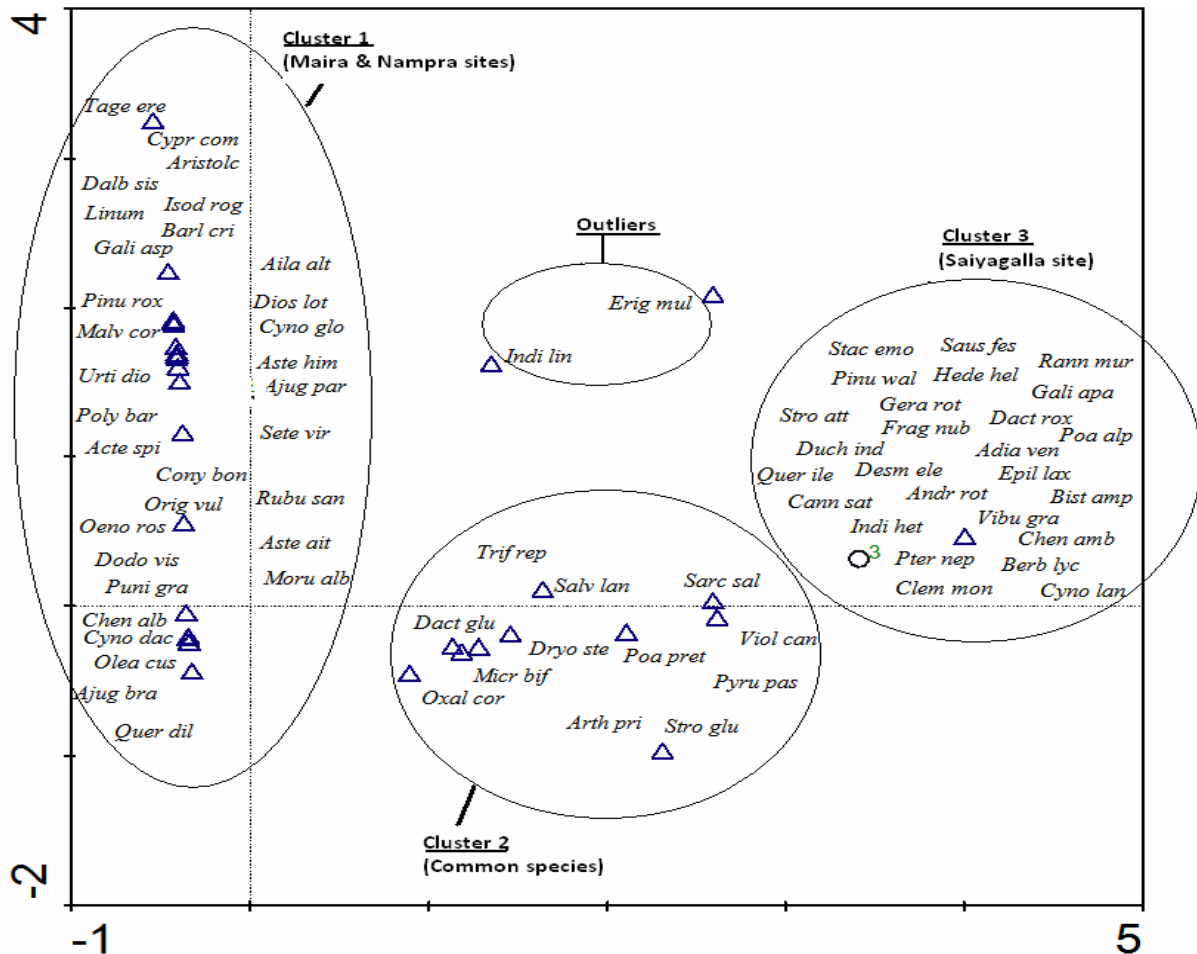 4
Cluster 1
(Maira & Nampra sites)
Tage ere
Cypr com
Aristolc
Dalb sis
Isod rog
Linum
Barl cri
Gali asp
Aila alt
Pinu rox
Dios lot
Malv cor
Cyno glo
Aste him
Urti dio
Ajug par
Poly bar
Sete vir
Acte spi
Cony bon
Rubu san
Orig vul
Oeno ros
Aste ait
Dodo vis
Moru alb
Puni gra
Chen alb
Cyno dac
Olea cus
Ajug bra
Quer dil
Outliers
Erig mul
Indi lin
Cluster 3
(Saiyagalla site)
Stac emo
Saus fes
Rann mur
Pinu wal
Hede hel
Gali apa
Gera rot
Stro att
Dact rox
Frag nub
Poa alp
Duch ind
Adia ven
Quer ile
Desm ele
Epil lax
Cann sat
Andr rot
Bist amp
Indi het
Vibu gra
Chen amb
3
Pter nep
Berb lyc
Clem mon
Cyno lan
Trif rep
Salv lan
Sarc sal
Dact glu
Dryo ste
Viol can
Poa pret
Micr bif
Pyru pas
Oxal cor
Arth pri
Stro glu
Cluster 2
(Common species)
-2
-1
5